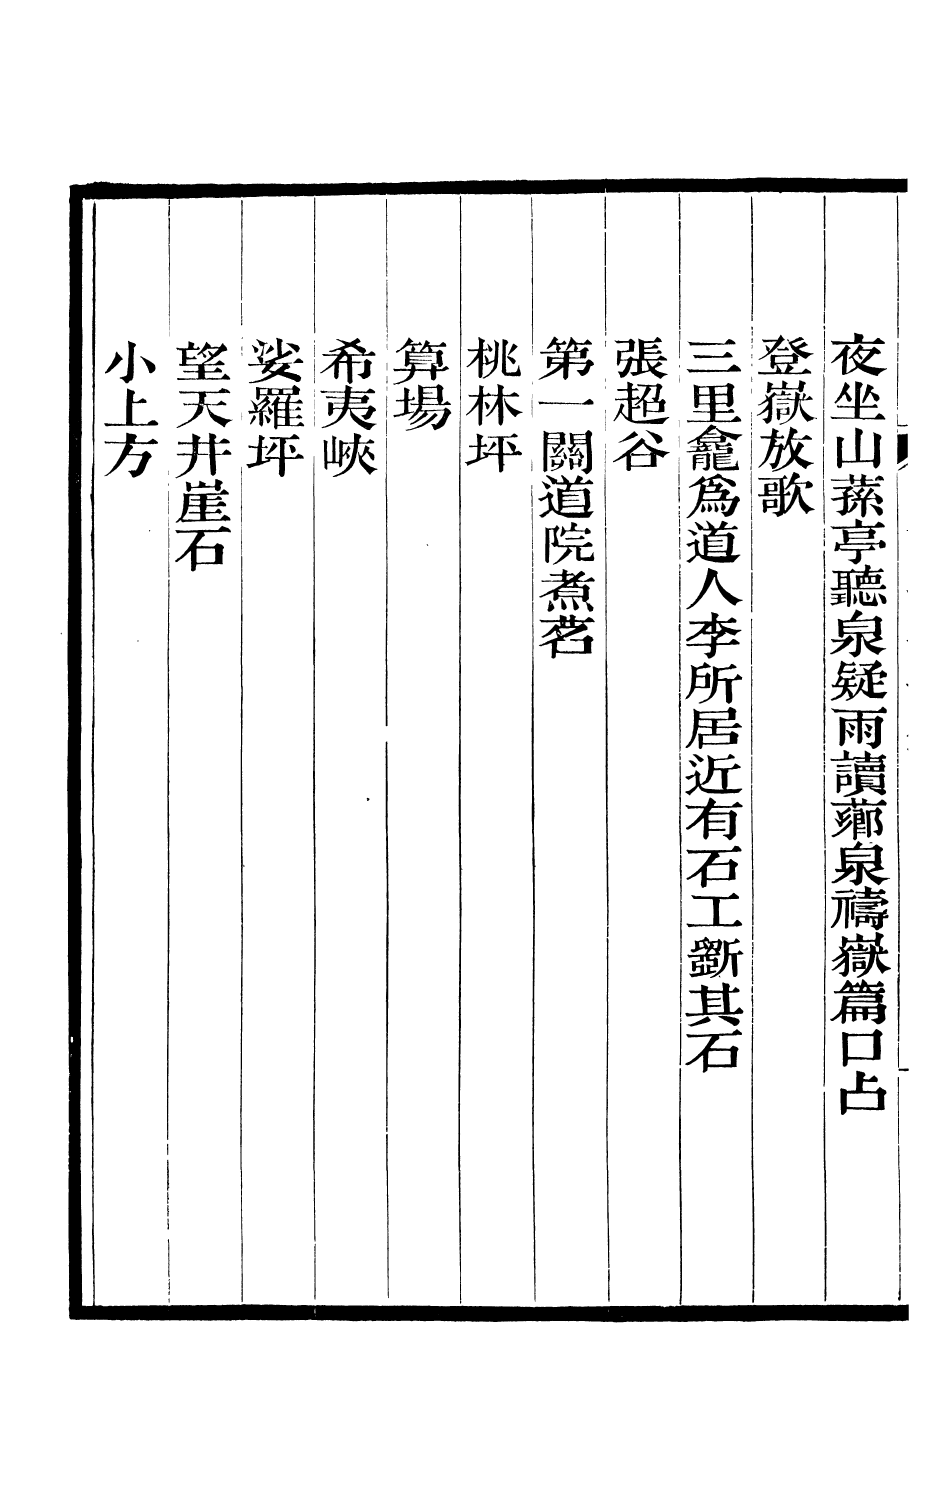 夜坐山蓀亭聽泉疑雨讀薌泉禱嶽篇口占
登嶽放歌
三里龕爲道人李所居近有石工斵其石
張超谷
第一關道院煮茗
桃林坪
算場
希夷峽
娑羅坪
望天井崖石
小上方